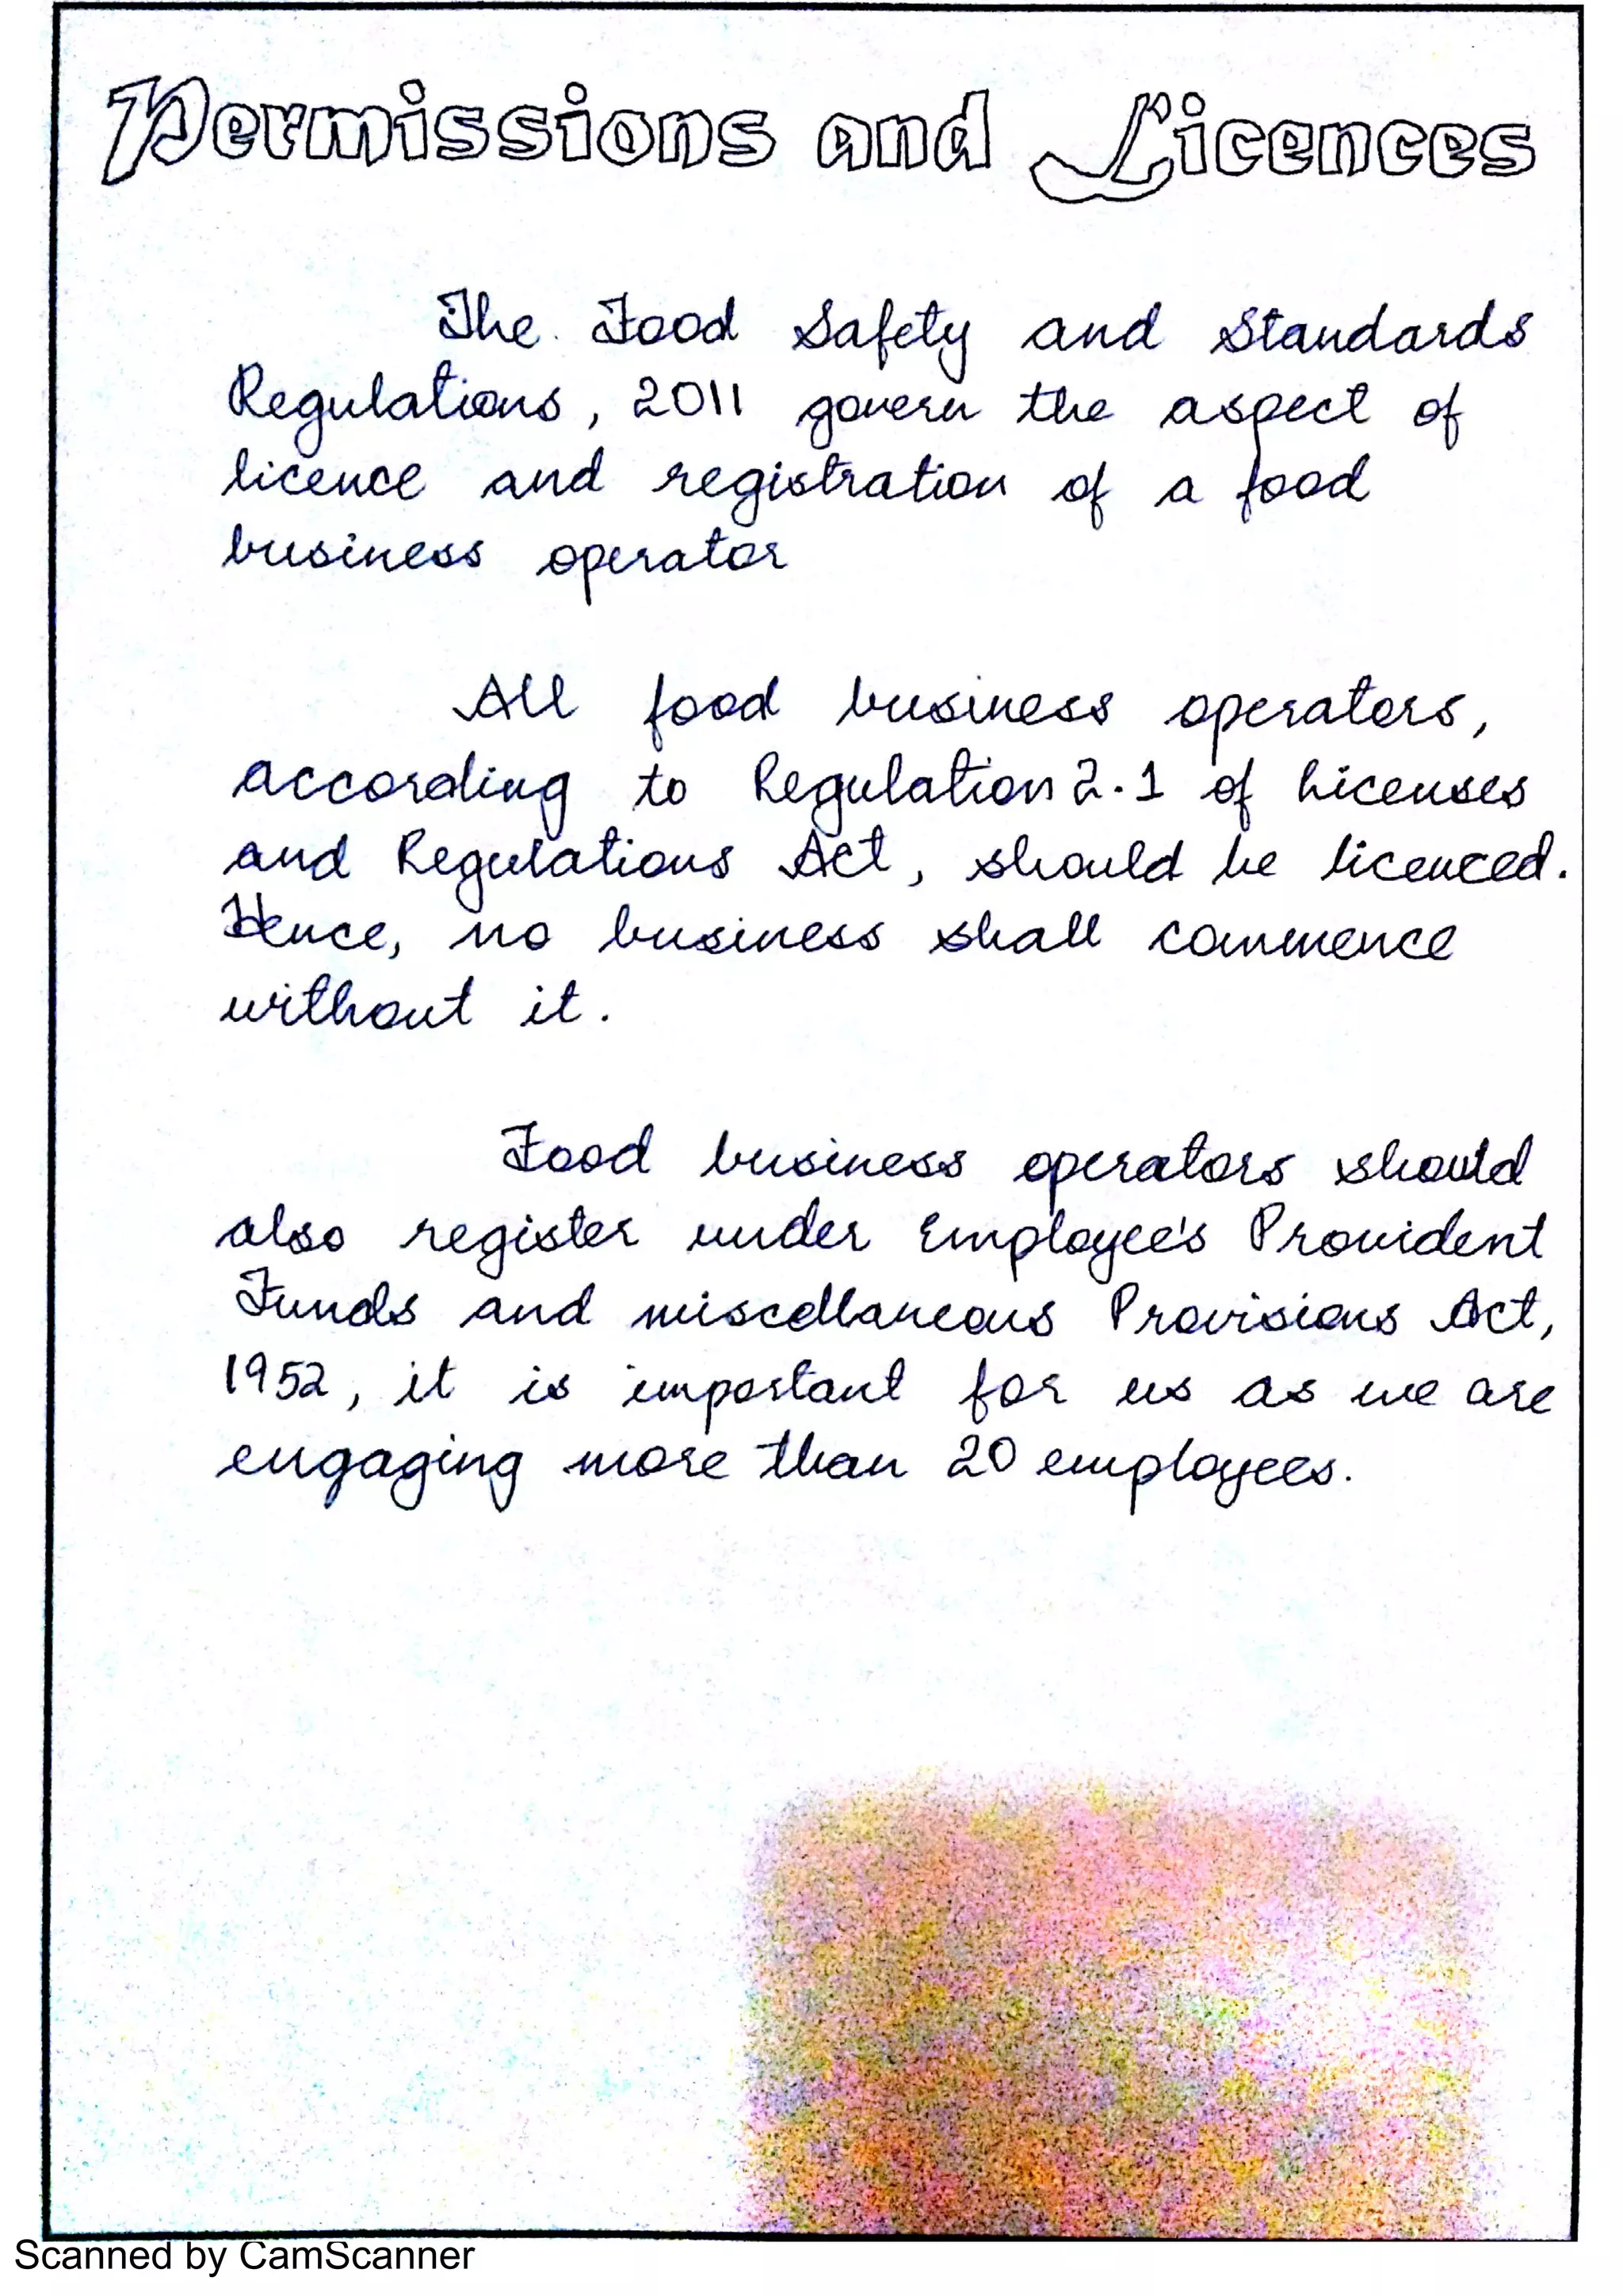 Permissions and Licences
The Food Safety and Standards
Regulations, 2011 govern the aspect of
licence and registration of a food
business operator
All food business operators,
according to Regulation 2.1 of Licenses
and Regulations Act, should be licenced.
Hence, no business shall commence
without it.
Food business operators should
also register under Employee's Provident
Funds and miscellaneous Provisions Act,
1952, it is important for us as we are
engaging more than 20 employees.
Scanned by CamScanner